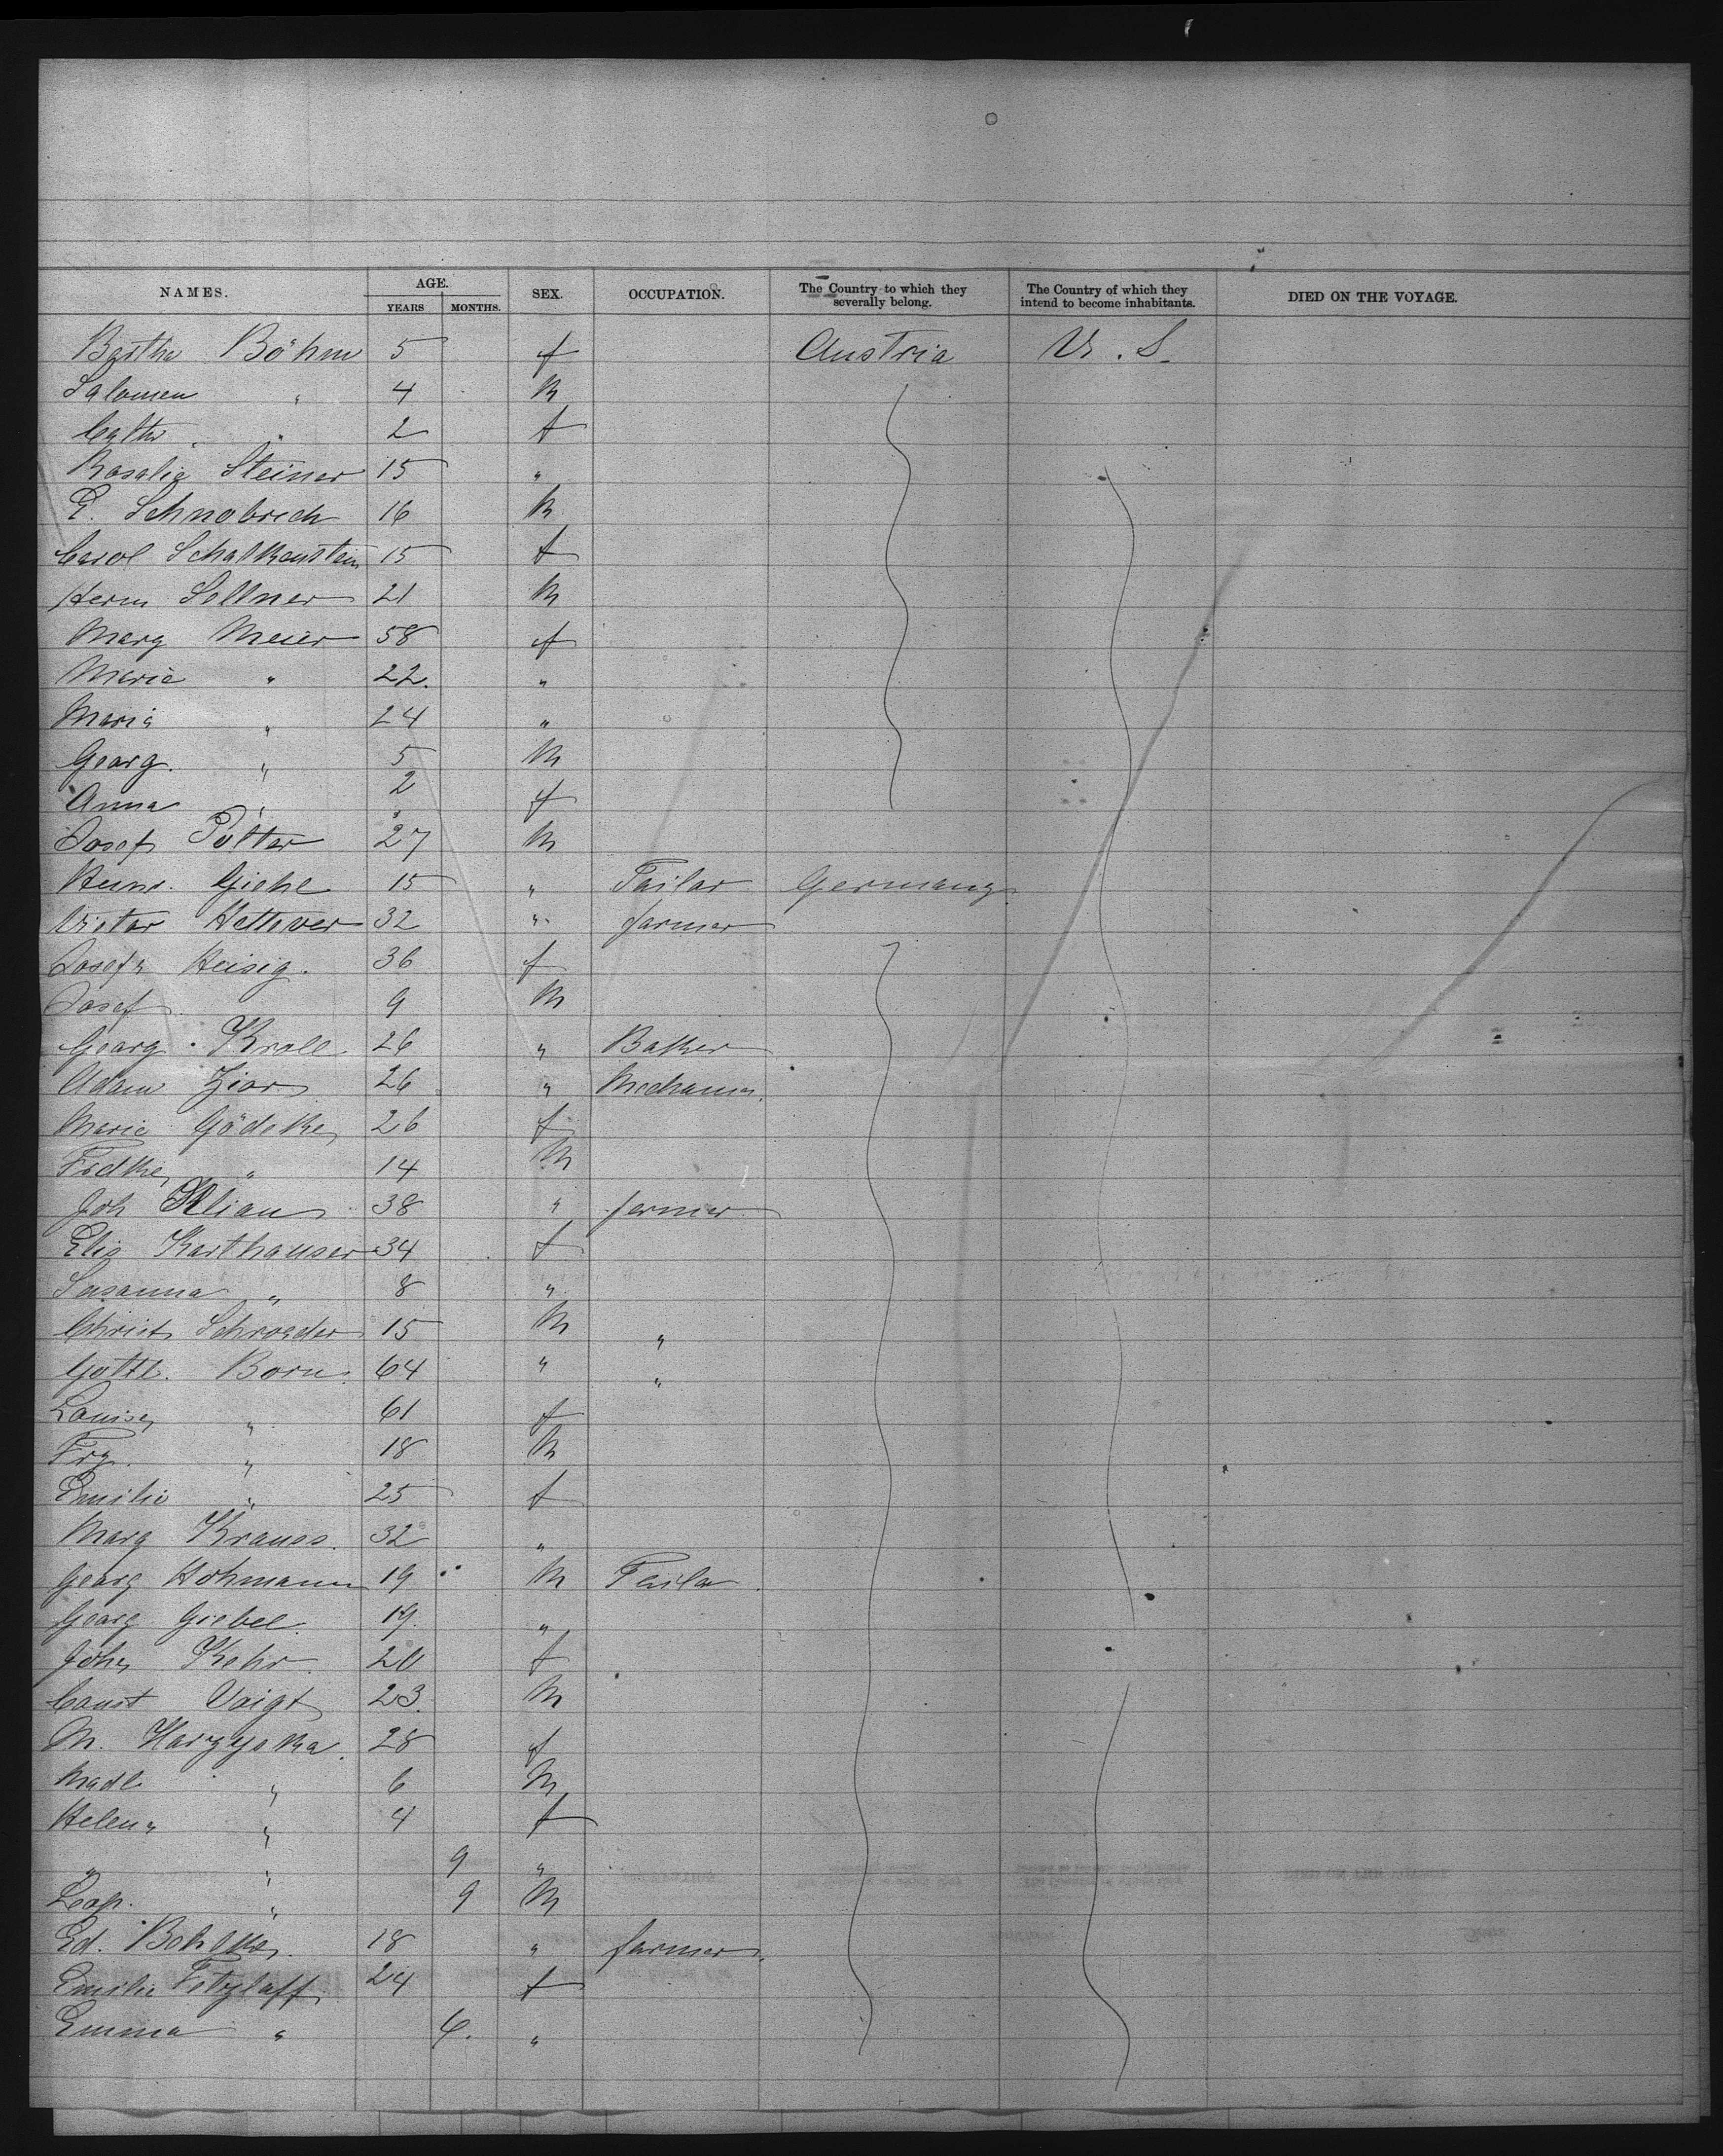 NAMES. AGE. YEARS MONTHS. SEX. OCCUPATION. The Country to which they severally belong. The Country of which they intend to become inhabitants. DIED ON THE VOYAGE.
Bertha Böhm 5 f Austria U. S.
Salomen " 4 M
Cath. " 2 f
Rosalie Steiner 15 "
E. Schnobrich 16 M
Carol Schalkenstein 15 f
Herm Sellner 21 M
Marg Meier 58 f
Marie " 22. "
Maria " 24 "
Georg. " 5 M
Anna " 2 f
Josef Polter 27 M
Giehl 15 " Tailor Germany
Victor Hettover 32 " farmer
Josefa Heisig. 36 f
Josef 9 M
Georg Kroll 26 " Baker
Adam Zior 26 "
Marie Gödeke 26 f
Fredke " 14 M
Joh Klian 38 " farmer
Elis Karthauser 34 f
Susanna " 8 "
Christ Schroeder 15 M "
Gottl. Born 64 " "
Louise " 61 f
Frz. " 18 M
Emilie " 25 f
Marg Krauss. 32 "
Georg Hohmann 19 M Tailor
Georg Giebel 19. "
Johs Kehr 20 f
Const Voigt 23. M
M. 28 f
Madl " 6 M
Helena " 4 f
" " 9 "
Leop. " 9 M
Ed. 18 " farmer
Emilie Tetzlaff 24 f
Emma " 6. "